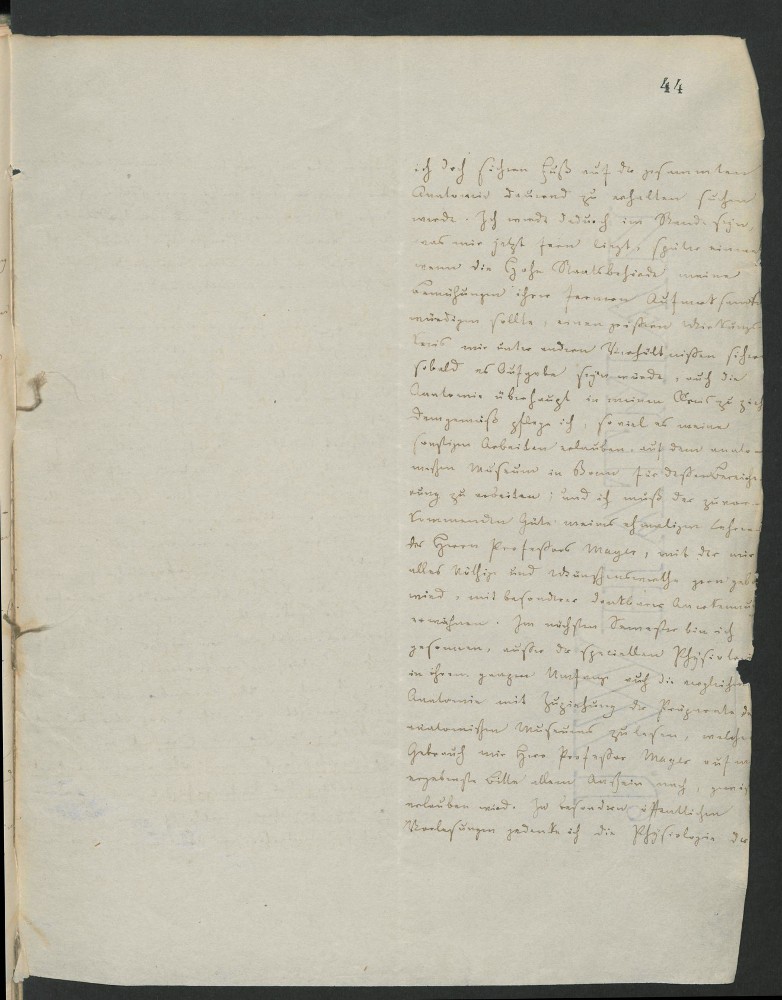 44
ich doch sichern Fuß auf der gesammten
Anatomie dauernd zu erhalten suchen
werde. Ich werde dadurch im Stande seyn,
was mir jetzt fern liegt, später einmal
wenn die Hohe Staatsbehörde meine
Bemühungen ihrer ferneren Aufmerksamk
würdigen sollte, einen größern Wirkungs
kreis mir unter andern Verhältnißen sichern
sobald es Aufgabe seyn würde, auch die
Anatomie überhaupt in meinen Kreis zu zieh
Demgemäß pflege ich, so viel es meine
sonstigen Arbeiten erlauben, auf dem anato-
mischen Museum in Bonn für deßen Bereiche
rung zu arbeiten; und ich muß der zuvor-
kommenden Güte meines ehmaligen Lehrers
des Herrn Professors Mayer, mit der mir
alles Nöthige und Wünschenswerthe gern geb
wird, mit besonderer dankbarer Anerkennu
erwähnen. Im nächsten Semester bin ich
gesonnen, außer der speciellen Physiolo
in ihrem ganzen Umfang auch die vergleiche
Anatomie mit Zuziehung der Präparate de
anatomischen Museums zu lesen, welche
Gebrauch mir Herr Professor Mayer auf m
ergebenste Bitte allem Anschein nach, gewiß
erlauben wird. In besondern öffentlichen
Vorlesungen gedenke ich die Physiologie der